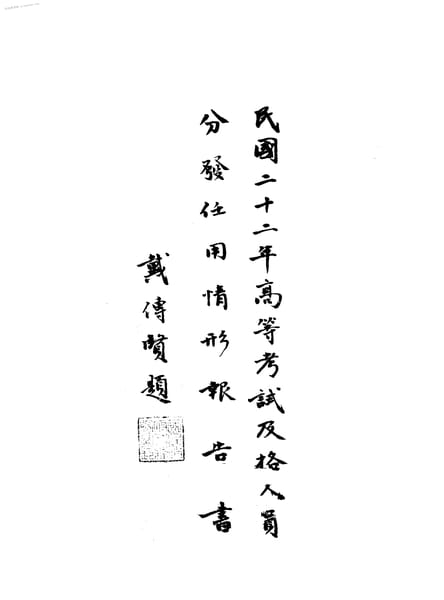 民國二十二年高等考試及格人員
分發任用情形報告書
戴傳賢題